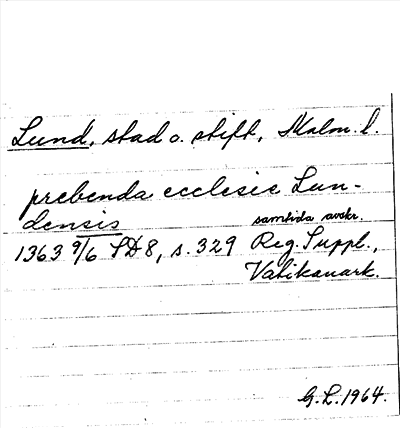 Lund, stad o. stift, Malm. l.
prebenda ecclesie Lun-
densis
samtida avskr.
1363 9/6 SD 8, s. 329 Reg. Suppl.,
Vatikanark.
G. L. 1964.